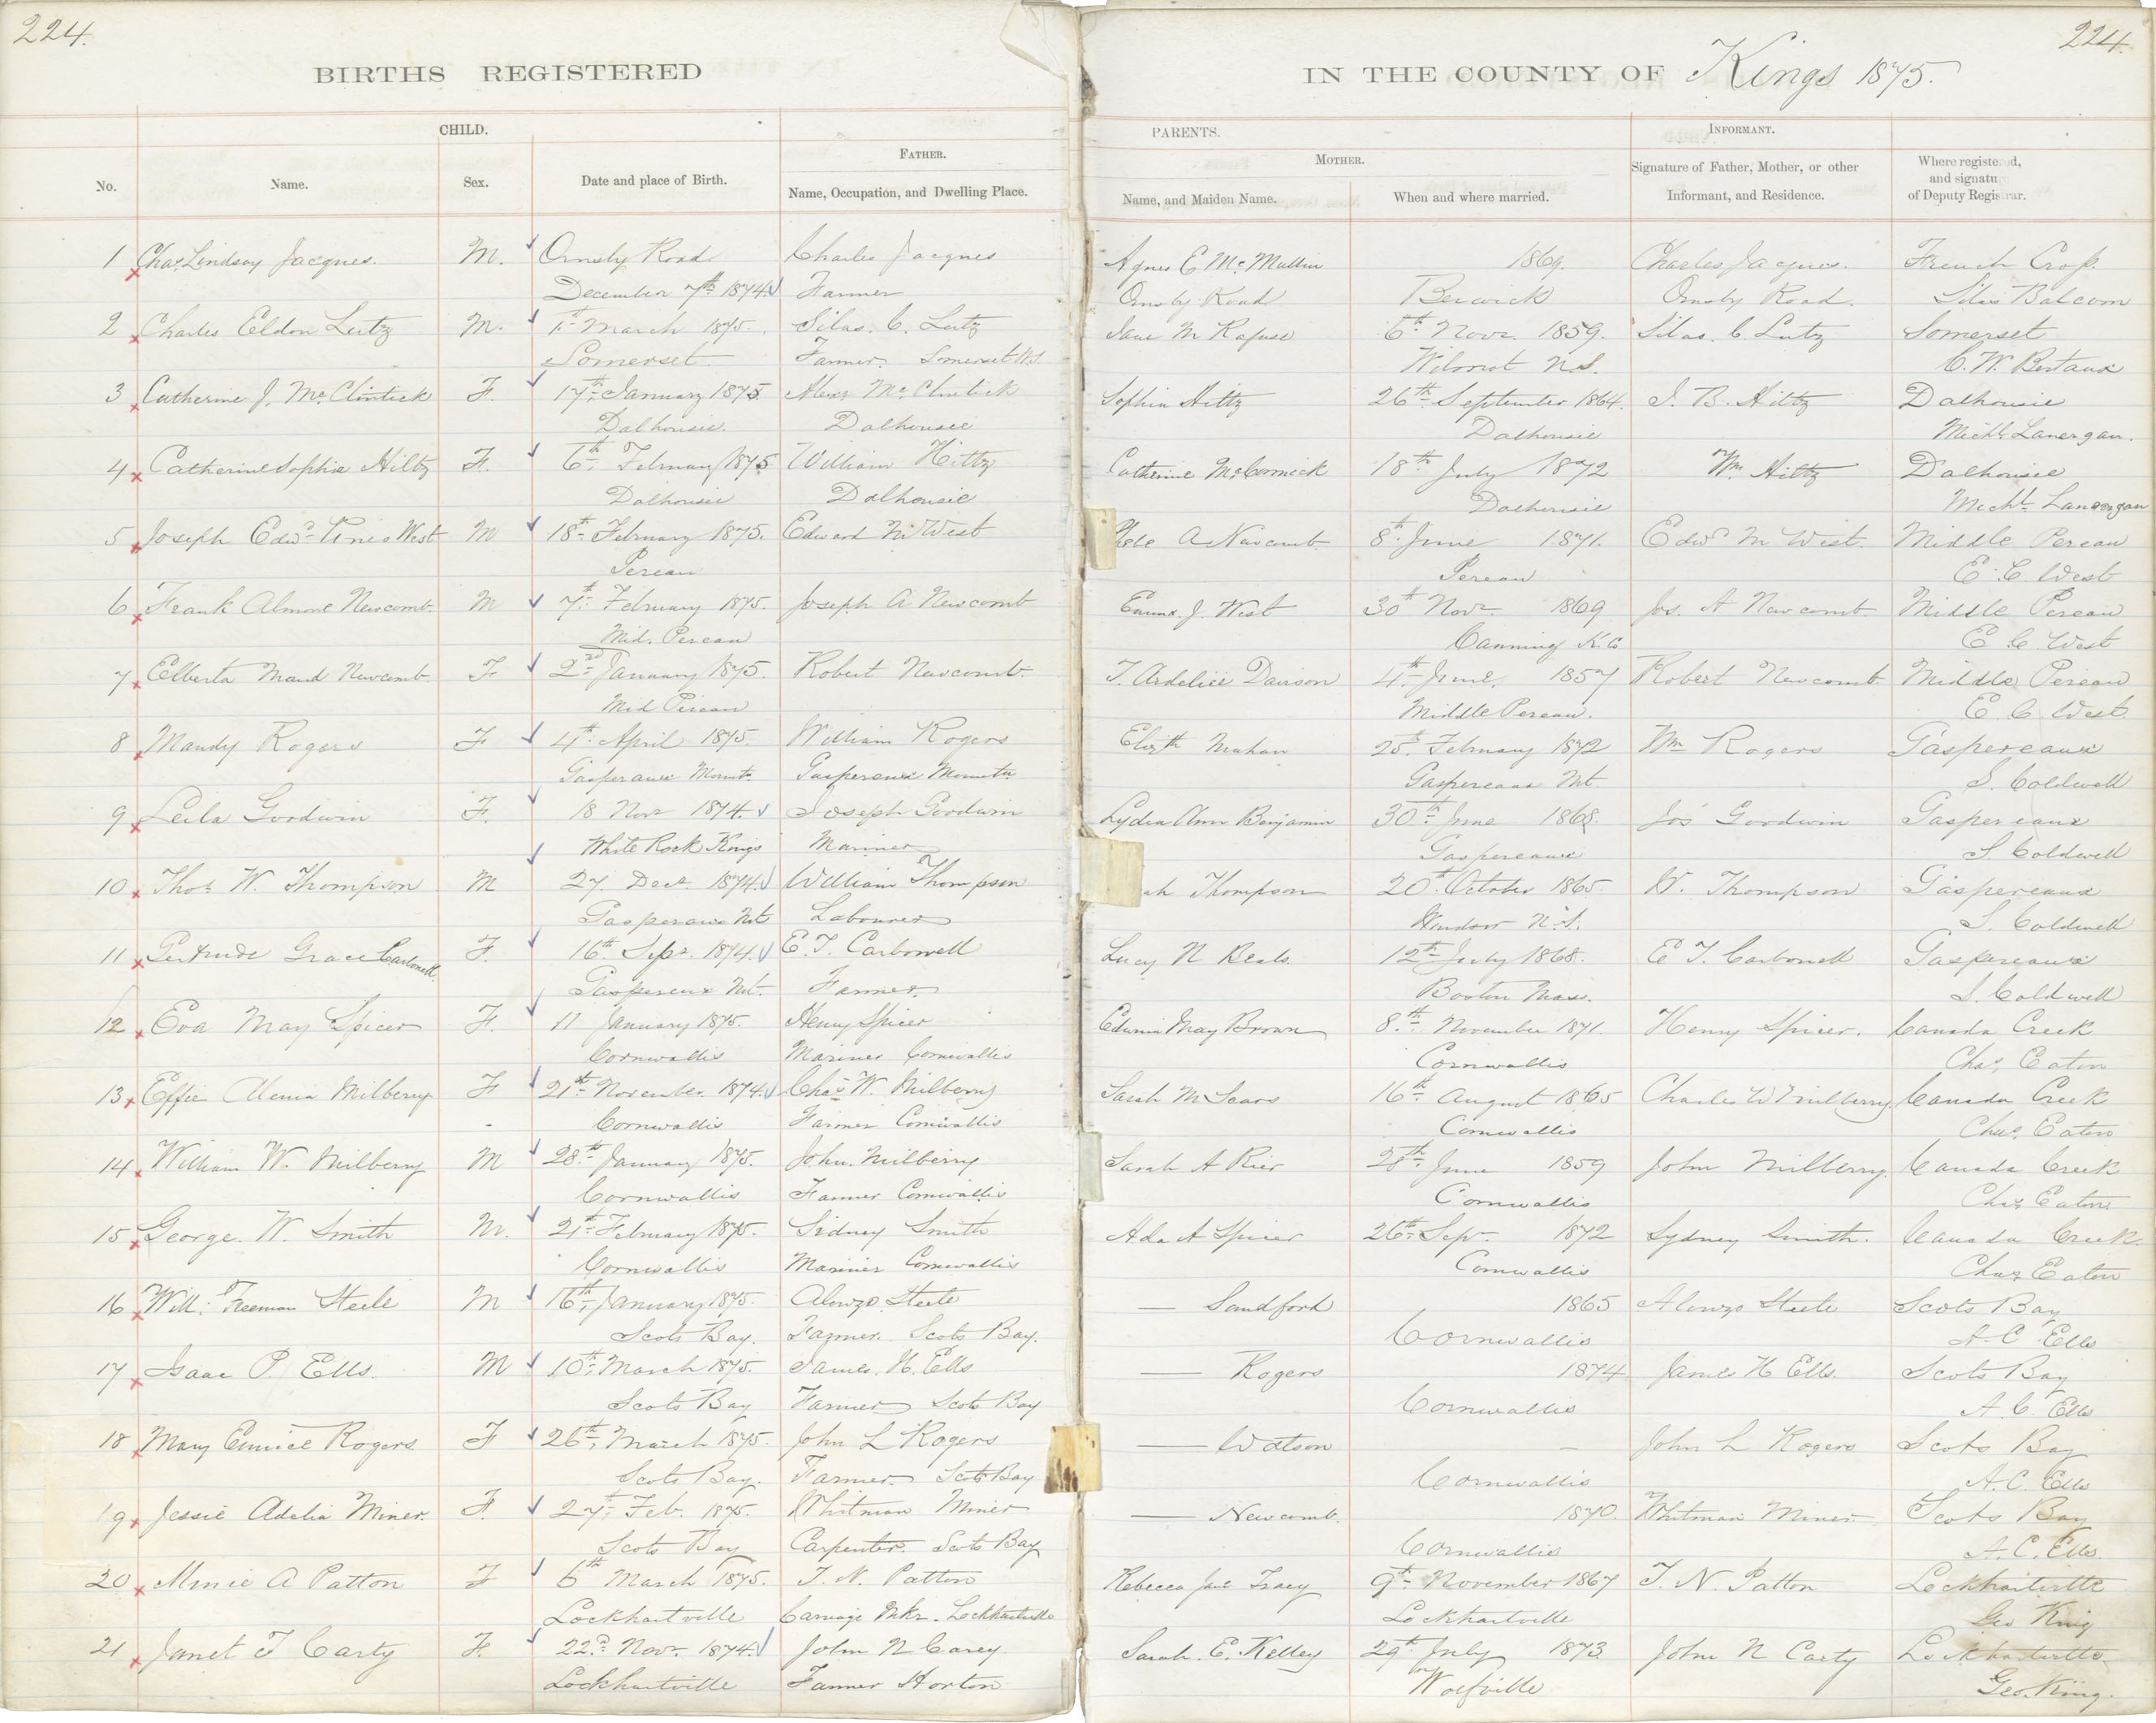 224.
224.
BIRTHS REGISTERED
IN THE COUNTY OF Kings 1875.
CHILD.
PARENTS.
INFORMANT.
No.
Name.
Sex.
Date and place of Birth.
FATHER.
Name, Occupation, and Dwelling Place.
MOTHER.
Name, and Maiden Name.
When and where married.
Signature of Father, Mother, or other
Informant, and Residence.
Where registered,
and signature
of Deputy Registrar.
1 Chas. Lindsay Jacques. M. Ormsby Road Charles Jacques Agnes E McMullin 1869. Charles Jacques. French Cross.
December 7th 1874. Farmer Ormsby Road Berwick Ormsby Road. Silas Balcom
2 Charles Eldon Lutz M. March 1875. Silas. C. Lutz Jane M Rafuse 6th Novr. 1859. Silas. C Lutz Somerset
Somerset. Farmer. Somerset N.S. Wilmot N.S. C. W. Bertaux
3 Catherine J. McClintick F. 17th January 1875 Alexr McClintick Sophia Hiltz 26th September 1864. J. B. Hiltz Dalhousie
Dalhousie. Dalhousie Dalhousie Michl Lanergan.
4 Catherine Sophia Hiltz F. 6th February 1875 William Hiltz Catherine McCormick 18th July 1872 Wm. Hiltz Dalhousie
Dalhousie Dalhousie Dalhousie Michl. Lanergan
5 Joseph Edwd West M 18th February 1875. Edward M West A Newcomb 8th June 1871. Edwd M West. Middle Pereau
Pereau Pereau E. C. West
6 Frank Almore Newcomb. M 7th February 1875. Joseph A Newcomb Emma. J. West 30th Novr. 1869 Jos. A Newcomb. Middle Pereau
Mid. Pereau Canning K. Co E. C. West
7 Elberta Maud Newcomb. F 2nd January 1875. Robert Newcomb. T. Ardelice Davison 4th June. 1857 Robert Newcomb. Middle Pereau
Mid Pereau Middle Pereau. E. C. West
8 Mandy Rogers F 4th April 1875. William Rogers Elizth Mahan 25th February 1872 Wm Rogers Gaspereaux
Gasperaux Mount. Gaspereux Mountn Gaspereaux Mt. S. Coldwell
9 Leila Goodwin F. 18 Novr 1874. Joseph Goodwin Lydia Ann Benjamin 30th June 1868. Jos Goodwin Gaspereaux
White Rock Kings Mariner Gaspereaux S. Coldwell
10 Thos W. Thompson M 27. Decr. 1874. William Thompson ah Thompson 20th October 1865. W. Thompson Gaspereaux
Gasperaux Mt Labourer Windsor N.S. S. Coldwell
11 Gertrude Grace Carbonell F. 16th Sepr. 1874. E. T. Carbonell Lucy N Beals 12th July 1868. E T. Carbonell Gaspereaux
Gaspereux Mt. Farmer. Boston Mass. S. Coldwell
12 Eva May Spicer F. 11 January 1875. Henry Spicer Edwina May Brown 8th November 1871. Henry Spicer. Canada Creek
Cornwallis Mariner Cornwallis Cornwallis Chas, Eaton
13 Effie Milberry F 21st November 1874. Chas W. Milberry Sarah M Sears 16th August 1865 Charles W Milberry. Canada Creek
Cornwallis Farmer Cornwallis Cornwallis Chas. Eaton
14 William W. Milberry M 28th January 1875. John. Milberry Sarah A Rier 28th June 1859 John Milberry. Canada Creek
Cornwallis Farmer Cornwallis Cornwallis Chas Eaton
15 George. W. Smith M. 21st February 1875. Sidney Smith Ada A Spicer 26th Sepr. 1872 Sydney Smith. Canada Creek.
Cornwallis Mariner Cornwallis Cornwallis Chas Eaton
16 Will: Freeman Steele M 16th January 1875. Alonzo Steele — Sandford 1865 Alonzo Steele Scots Bay
Scots Bay. Farmer. Scots Bay. Cornwallis A. C. Ells
17 Isaac P. Ells. M 10th March 1875. James. H. Ells — Rogers 1874 James H Ells. Scots Bay
Scots Bay Farmer Scots Bay Cornwallis A. C. Ells
18 Mary Eunice Rogers F 26th March 1875. John L Rogers — Watson — John L Rogers Scots Bay
Scots Bay. Farmer Scots Bay Cornwallis A. C. Ells
19 Jessie Adelia Miner. F. 27th Feb. 1875. Whitman Miner — Newcomb. 1870. Whitman Miner Scots Bay
Scots Bay Carpenter. Scots Bay Cornwallis A. C. Ells.
20 Minie A Patton F 6th March 1875. T. N. Patton Rebecca Jane Tracy 9th November 1867 T. N. Patton Lockhartville
Lockhartville Carriage Mkr. Lockhartville Lockhartville Geo King
21 Janet T Carty F. 22nd Novr. 1874. John N Carey Sarah. E. Kelley 29th July 1873 John N Carty Lockhartville
Lockhartville Farmer Horton Wolfville Geo. King.